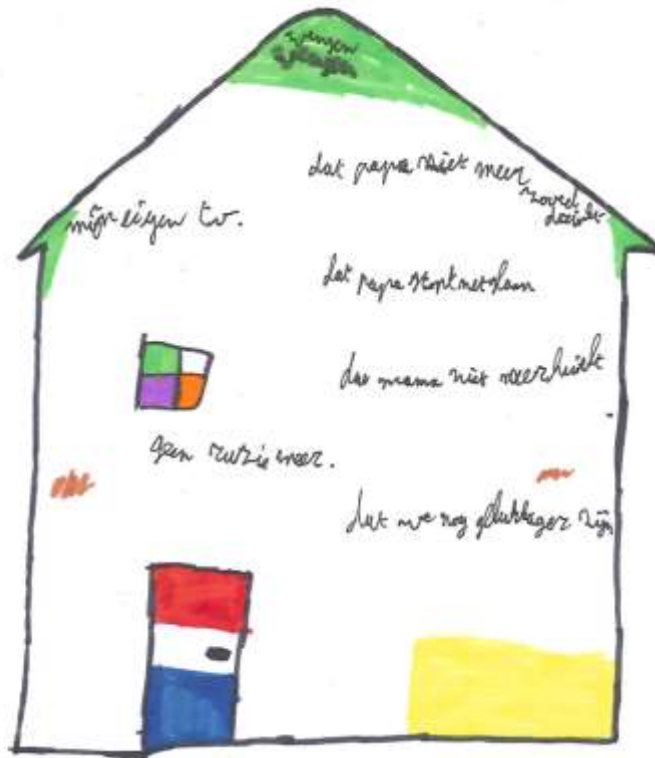 wensen
mijn eigen tv.
dat papa niet meer
zoveel
drinkt
dat papa stopt met slaan
dat mama niet meer huilt
geen ruzie meer.
dat we nog gelukkiger zijn